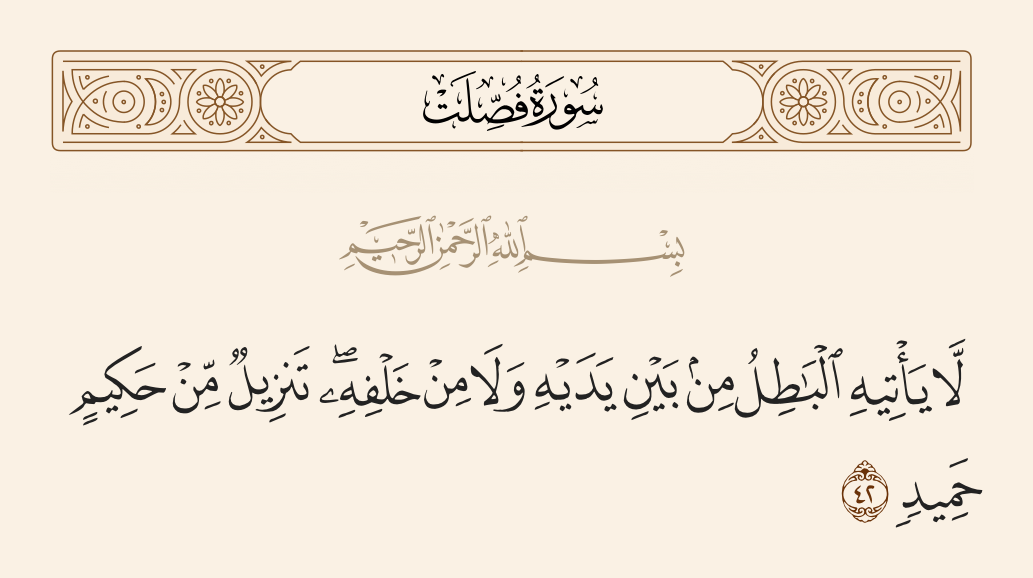 سُورَةُ فُصِّلَتْ
بِسْمِ ٱللَّهِ ٱلرَّحْمَٰنِ ٱلرَّحِيمِ
لَّا يَأْتِيهِ ٱلْبَٰطِلُ مِنۢ بَيْنِ يَدَيْهِ وَلَا مِنْ خَلْفِهِۦ ۖ تَنزِيلٌ مِّنْ حَكِيمٍ
حَمِيدٍ ٤٢